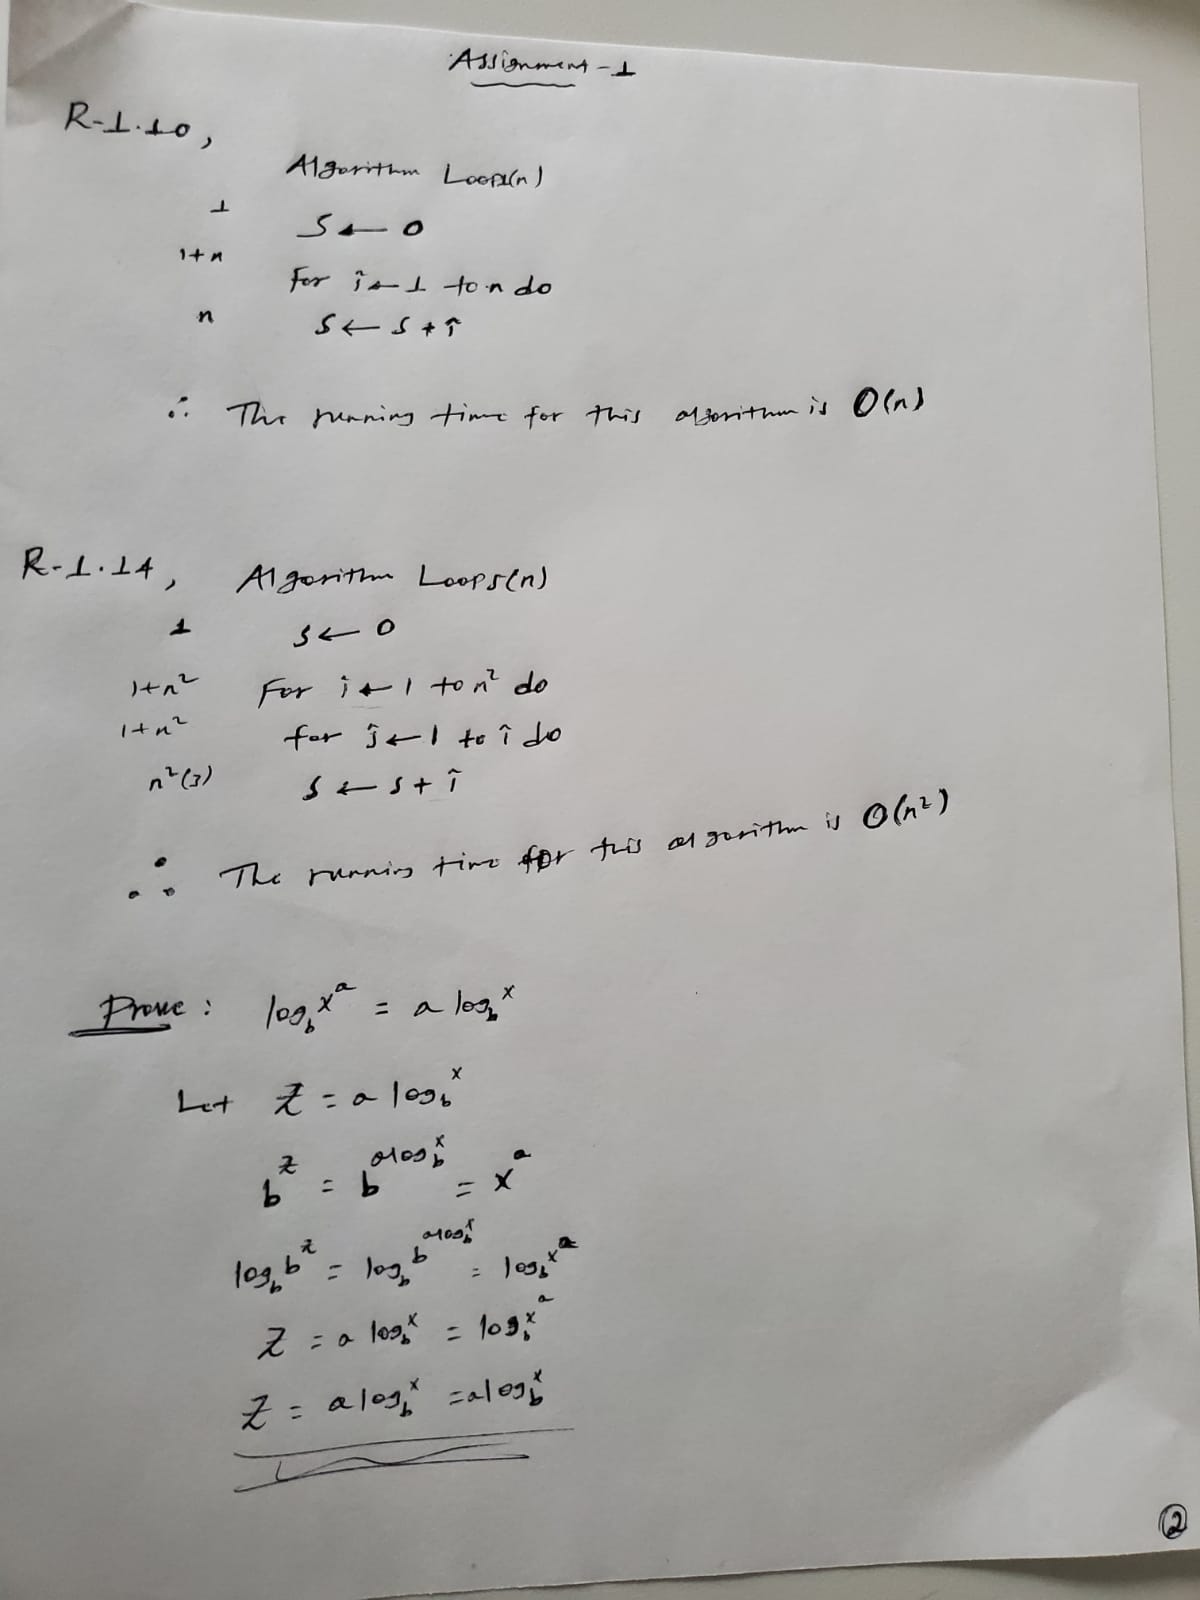 Assignment - 1
R-1.10,
Algorithm Loops1(n)
1 S ← 0
1+n For i ← 1 to n do
n S ← S + i
∴ The running time for this algorithm is O(n)
R-1.14, Algorithm Loops(n)
1 S ← 0
1+n² For i ← 1 to n² do
1+n² for j ← 1 to i do
n²(3) S ← S + i
∴ The running time for this algorithm is O(n²)
Prove : log_b x^a = a log_b x
Let Z = a log_b x
b^z = b^(a log_b x) = x^a
log_b b^z = log_b b^(a log_b x) = log_b x^a
Z = a log_b x = log_b x^a
Z = a log_b x = a log_b x
2